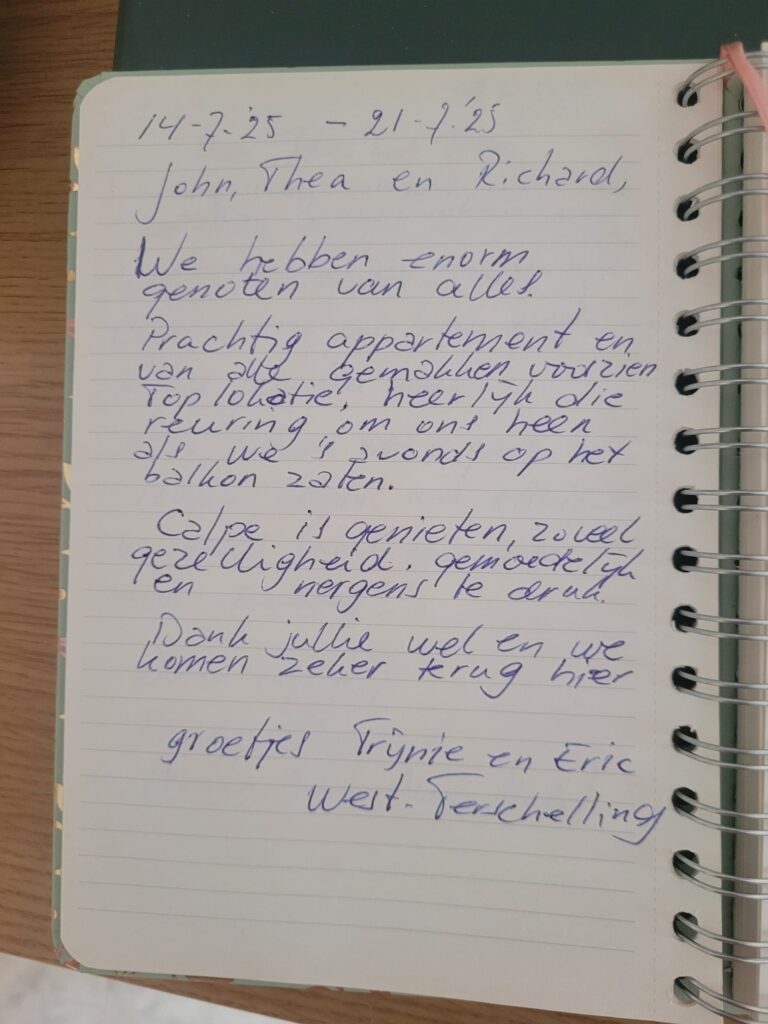 14-7-'25 - 21-7-'25
John, Thea en Richard,
We hebben enorm
genoten van alles.
Prachtig appartement en
van alle gemakken voorzien
Toplokatie, heerlijk die
reuring om ons heen
als we 's avonds op het
balkon zaten.
Calpe is genieten, zoveel
gezelligheid. gemoedelijk
en nergens te druk.
Dank jullie wel en we
komen zeker terug hier
groetjes Trijnie en Eric
West-Terschelling